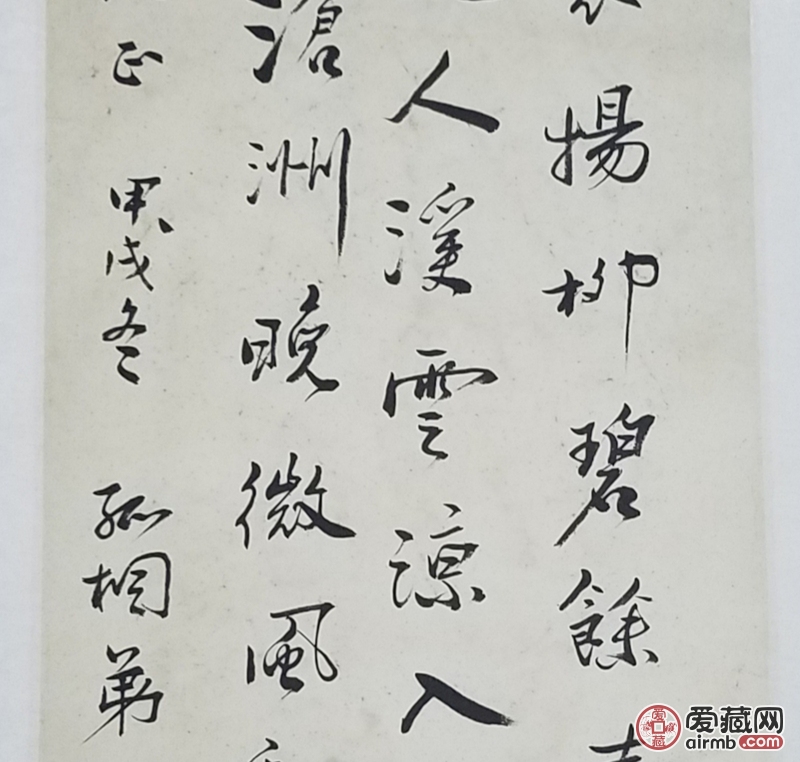 揚柳碧餘
人溪雲涼入
滄洲晚微風
正 甲戌冬 孤桐弟
爱藏网
airmb.com